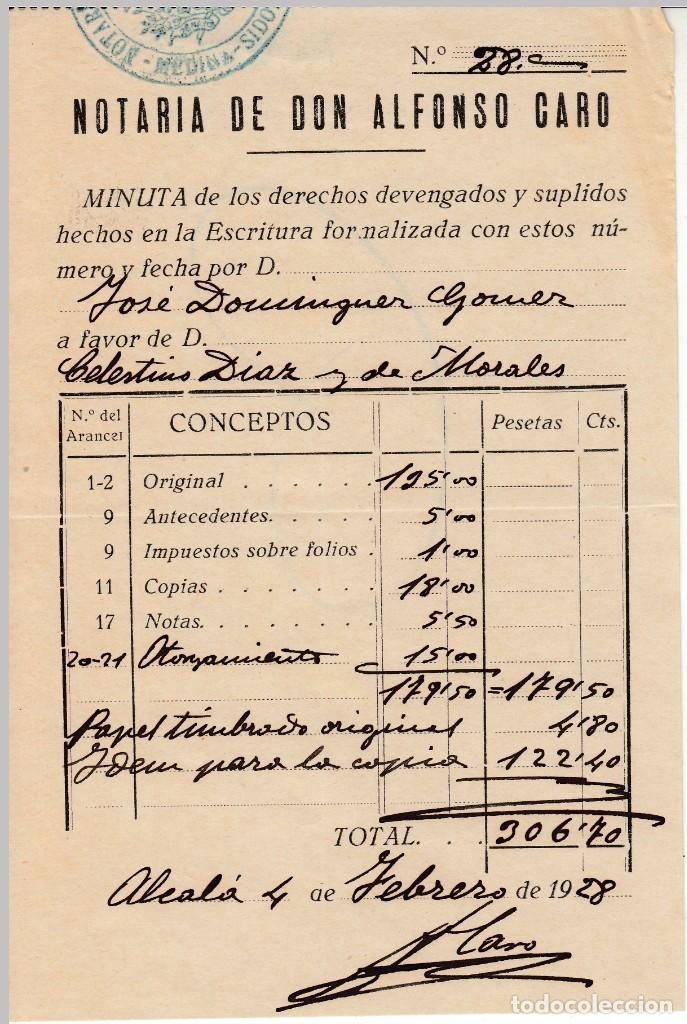 NOTAR
- MEDINA-SIDO
N.º 28.
NOTARIA DE DON ALFONSO CARO
MINUTA de los derechos devengados y suplidos
hechos en la Escritura formalizada con estos nú-
mero y fecha por D.
José Dominguez Gomez
a favor de D.
Celestino Díaz y de Morales
N.º del Arancel CONCEPTOS Pesetas Cts.
1-2 Original . . . . . . 135'00
9 Antecedentes. . . . . . 5'00
9 Impuestos sobre folios . 1'00
11 Copias . . . . . . . 18'00
17 Notas. . . . . . . 5'50
20-21 Otorgamiento 15'00
179'50 = 179'50
Papel timbrado original 4'80
Idem para la copia 122'40
TOTAL. . . 306'70
Alcalá 4 de Febrero de 1928
ACaro
todocoleccion